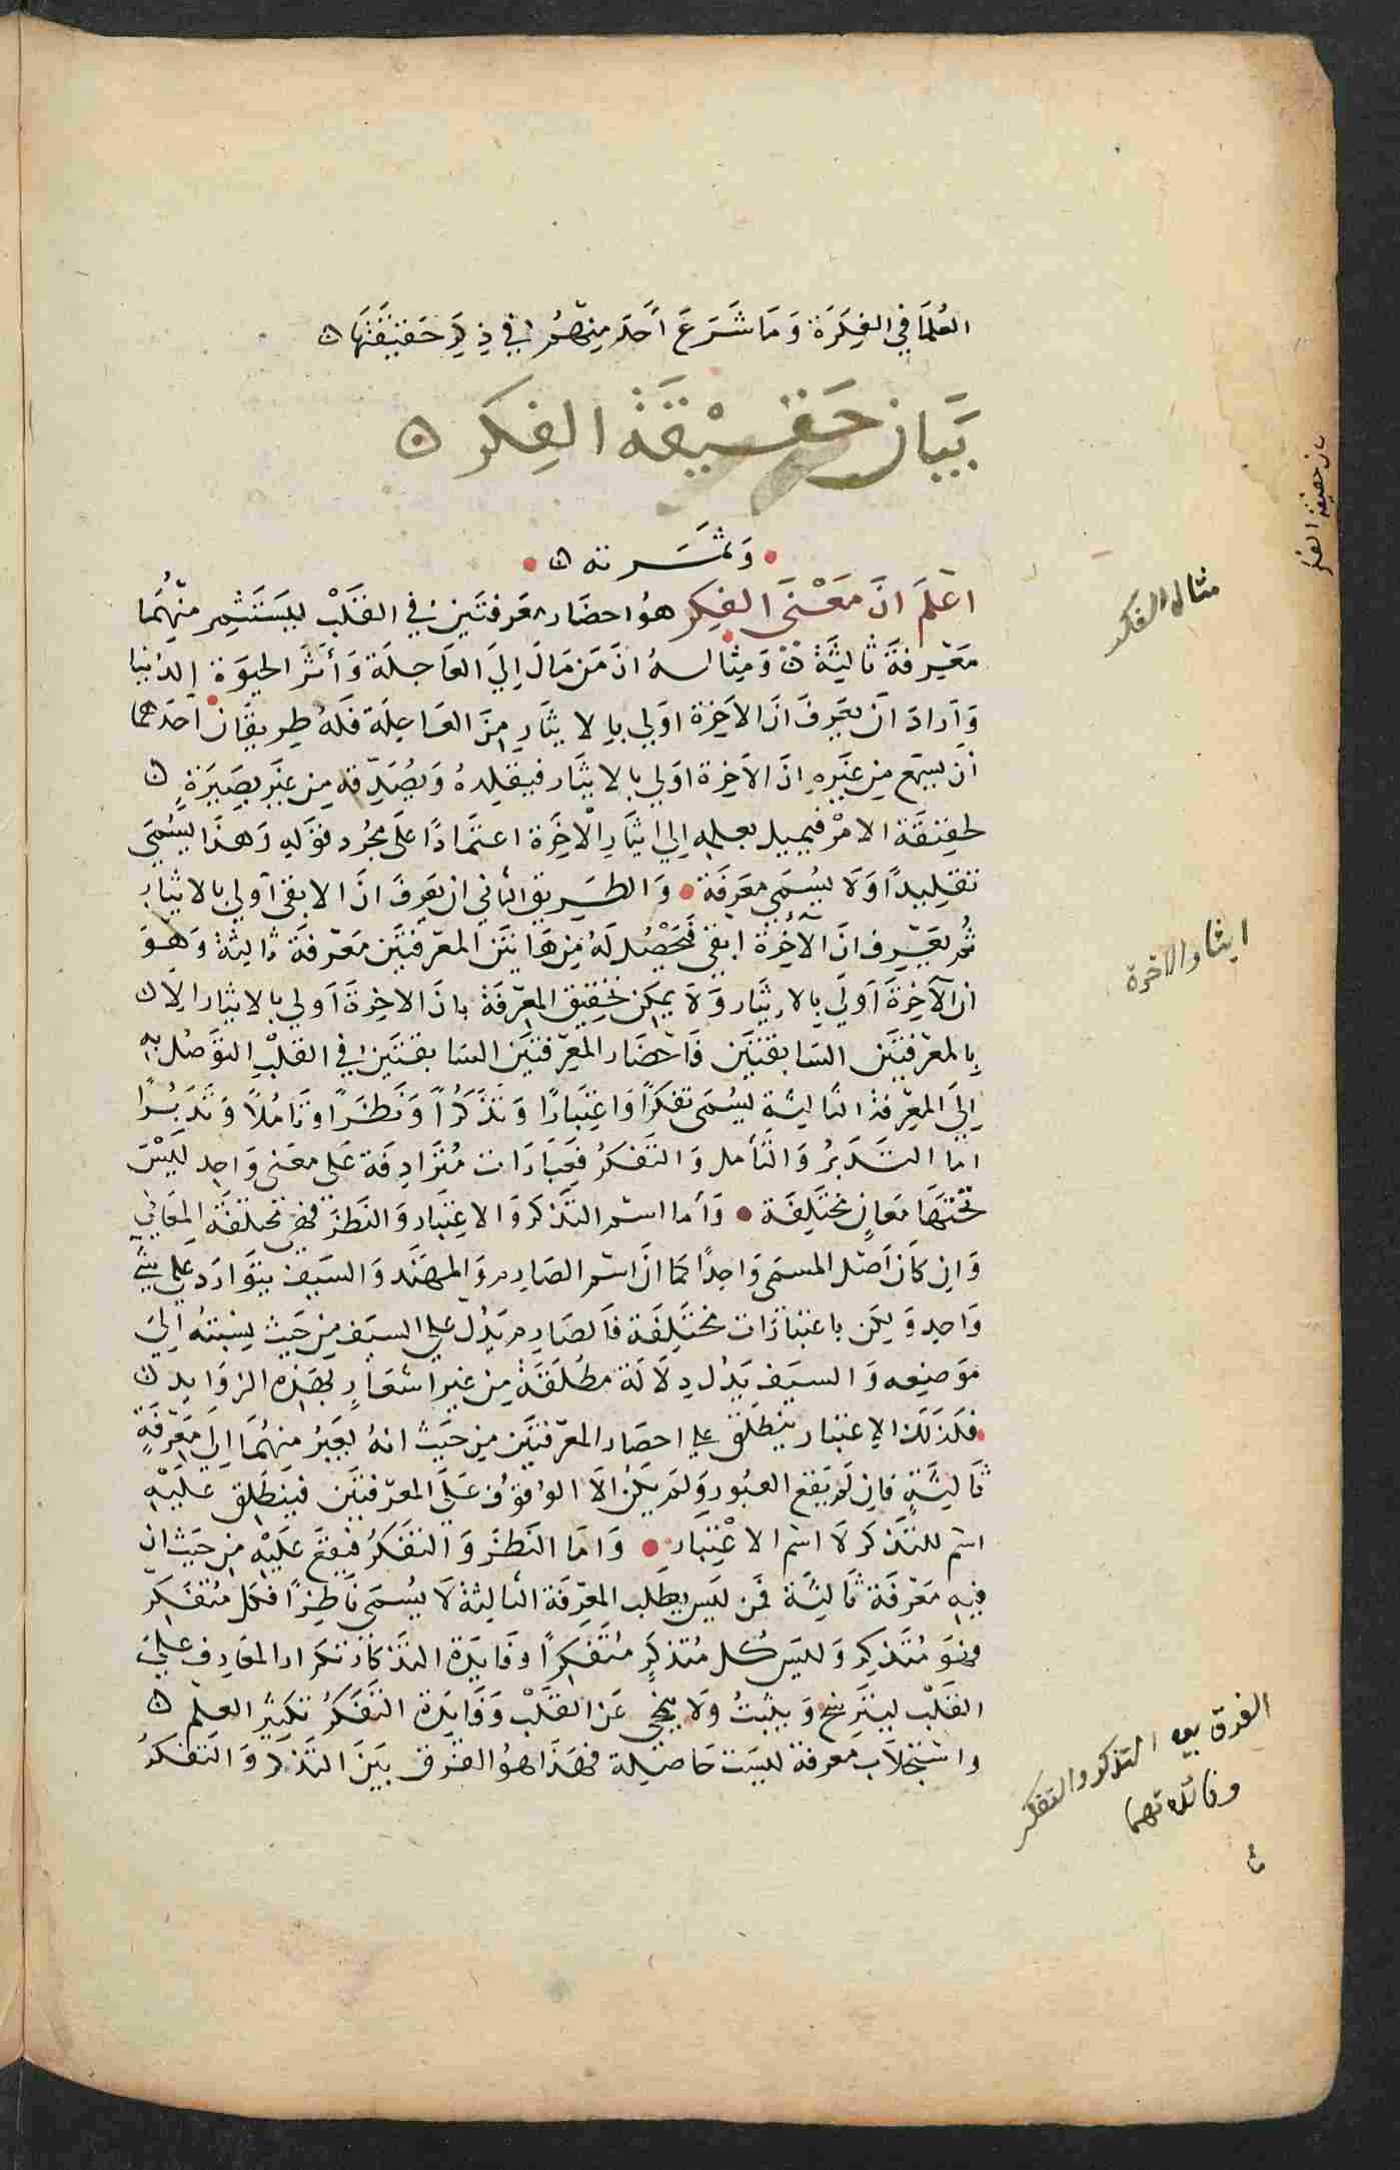 العُلمَا في الفِكرَة وَمَا شَرَعَ أحَد مِنهُم في ذِكرِ حَقيقَتهَا
بَيَان حَقِيْقَة الفِكر
وَثمَسَرته
اعْلَم انَّ مَعْنَى الفِكر هوُ احضَار مَعَرفتَين في القَلَبْ ليَستَثمِر مِنهُمَا
مَعَرِفَة ثَالِثَة وَمِثَاله انَّ مَن مَالَ اِلىَ العَاجِلَة وَأثَرَ الحَيوَة الدُنيا
وَاَرادَ اَن يَعَرفَ انَّ الاَخِرَة اوَلي بِالايثَارِ مِنَ العَاجِلَة فَلَهُ طِريقَان اَحَدهمَا
اَن يسمَع مِن غَيَرهِ انَّ الاَخِرة اوَلي بالايثَار فيقلِدهُ وَيصُدِّقه مِن غَيَر بصَيَرَةٍ
لحقيقَة الامْر فيميل بعلمه اِلي ايثَارِ الاخِرَة اعتمَادًا عَلَى مجُرد قوَلهِ وَهذَا يسُمَى
تقليدًا وَلاَ يسُمَى معَرفَة وَالطَريق الثاني ان يَعرفَ انَّ الابقى اَولى بالايثار
ثُم يعَرِف انَّ الآخِرَة ابقى فَيحَصُل لَهُ مِن هَاتيَن المعَرفتيَن مَعَرفَة ثالِثَة وَهوَ
ان الآخِرَةَ اَوليَ بِالايثَار وَلاَ يمكِن تحقِيق المعَرفَة بانَّ الاخِرَة اَولي بالايثار الا
بِالمعَرفتيَن السَابقتيَن فَاحْضَار المعَرِفتَين السَابقتَين في القَلبْ التوَصُل به
اِلىَ المعَرِفة الثالِثَة يسُمَى تفكرًا وَاعِتبَارًا وَتَذكرًا وَنَظَرًا وتَامُلاً وَتَدَبُرًا
امَّا التَدَبرُ وَالتأمل وَالتَفكرُ فعَبَارَات مُتَرَادِفَة عَلى معَنى وَاحِد ليَسَ
تحَتهَا مَعَانٍ مختَلِفَة وَأما اسَم التَذكر وَالاعِتبَار وَالنَظَر فهي مختلفَة المعَاني
وَان كَانَ اَصَل المسمَى وَاحِدًا كمَا انَّ اسَم الصَارِم وَالمهَنَد وَالسَيف يتوَارَد علي شَئ
وَاحِد وَلكِن باعتبَارَات مختَلِفَة فَالصَارِم يَدُل علي السيَف مِن حَيث نِسبَتُه الي
مَوَضِعه وَالسيَف يَدُل دِلاَلَة مطَلَقَة مِن غير اشعَارٍ بهَذِه الزوَايد
فكَذَلكَ الاِعتبَار ينطَلق علي احضَار المعَرفتيَن مِن حيَثُ انهُ يعَبرُ مِنهُمَا اِلىَ مَعَرفَةٍ
ثَالِثَةٍ فان لَم يَقع العبُور وَلَم يَكُن الاَّ الوُقوُف عَلىَ المعَرفتَين فيَنطَلِق عَلَيْهِ
اسَم التَذكر لاَ اسَم الاعْتِبَار وَامَا النَظَر وَالتفَكرُ فيَقَع عَلَيْهِ مِن حَيثُ ان
فيهِ مَعَرفَة ثَالِثَة فمَن ليَسَ يطَلب المعَرِفَة الثالِثَة لاَ يسُمَى نَاظِرًا فكل مُتفَكر
فهوَ مُتَذكِر وَليَسَ كُل مُتذكرِ مُتَفكِرًا وَفايَدَة التَذكار تكرَار المعَارِف علىَ
القَلَبْ ليَترَسخ وَيثبتُ وَلا ينمحي عَن القَلَبْ وَفَايَدَة التَفَكرُ تكثير العِلم
واسَتجلاَب مَعرفة ليسَت حَاصِلة فهَذَا هوُ الفَرق بيَنَ التَذكر وَالتفكر
بيان حقيقة الفكر
مثال الفكر
ايثار الآخرة
الفرق بين التذكر والتفكر
وفائدتهما